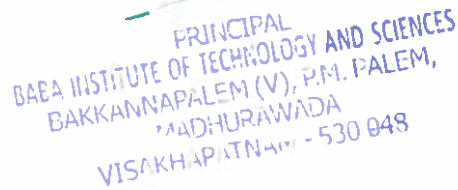 PRINCIPAL
BABA INSTITUTE OF TECHNOLOGY AND SCIENCES
BAKKANNAPALEM (V), P.M. PALEM,
MADHURAWADA
VISAKHAPATNAM - 530 048